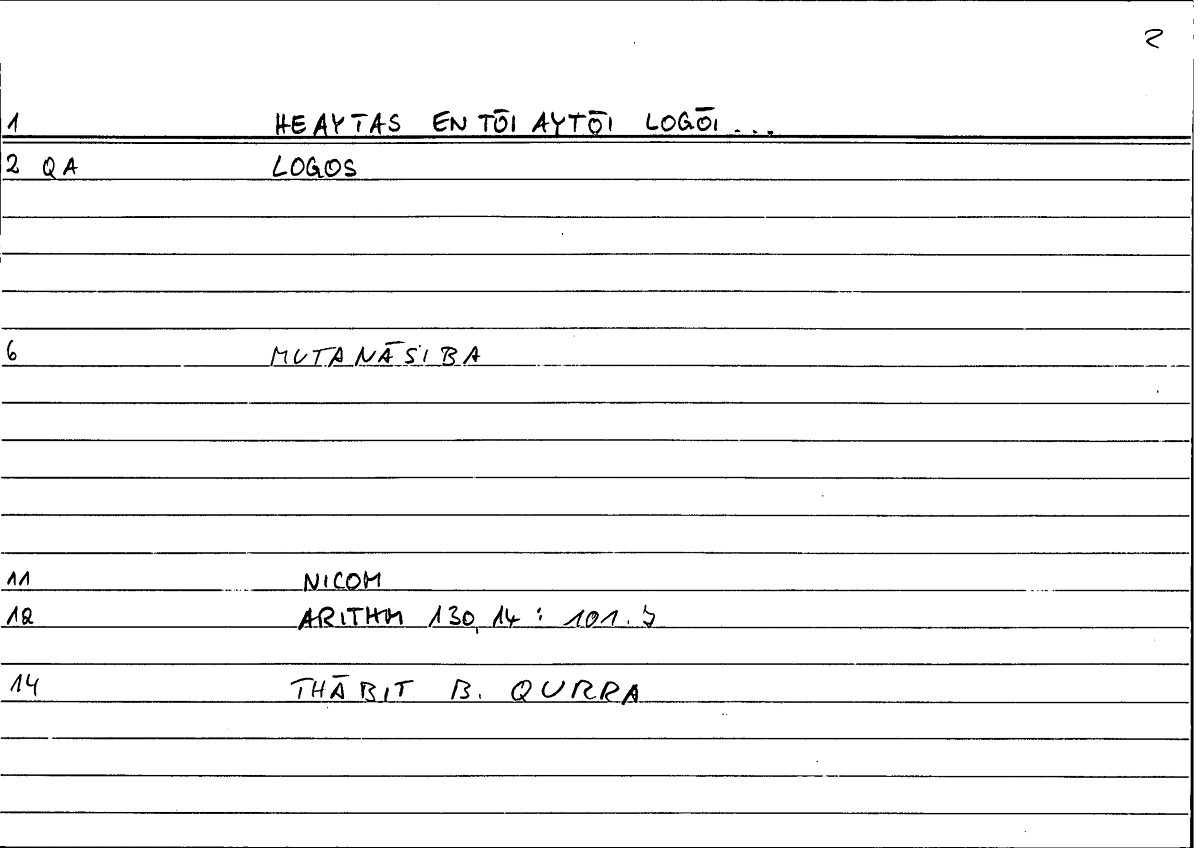 2
1 HEAYTAS EN TŌI AYTŌI LOGŌI...
2 QA LOGOS
6 MUTANĀSIBA
11 NICOM
12 ARITHM 130,14 : 101.
14 THĀBIT B. QURRA